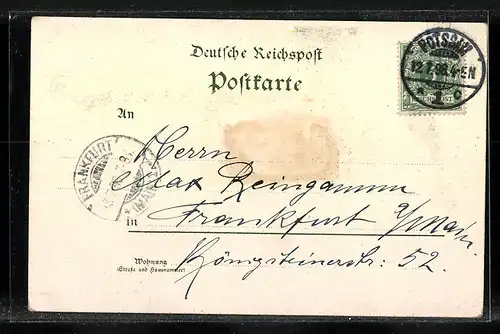 Deutsche Reichspost
Postkarte
POTSDAM
12.7.98.4-5N
* 1 c
An
Herrn
Max Reingamm
FRANKFURT
(MAIN)
in Frankfurt a/Main.
Wohnung
(Straße und Hausnummer)
Königsteinerstr: 52.